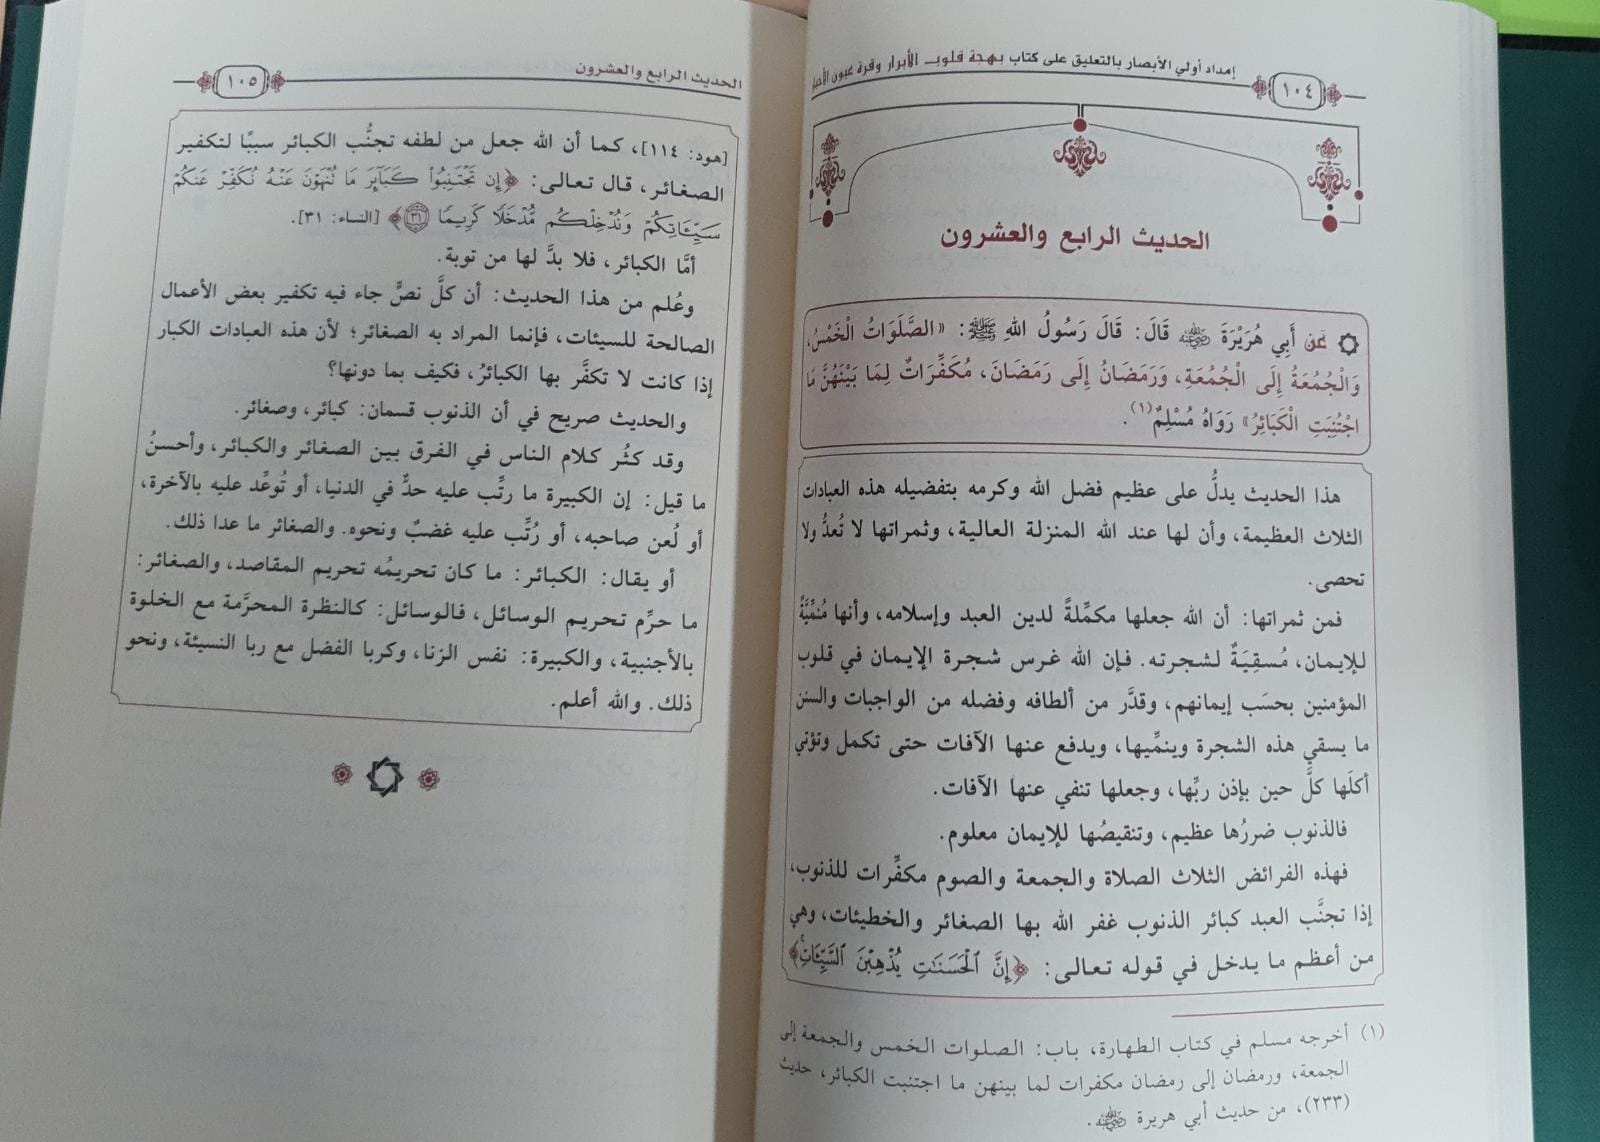 إمداد أولي الأبصار بالتعليق على كتاب بهجة قلوب الأبرار وقرة عيون الأخيار
١٠٤
الحديث الرابع والعشرون
عَن أَبِي هُرَيْرَةَ رضي الله عنه قَالَ: قَالَ رَسُولُ اللهِ ﷺ: «الصَّلَوَاتُ الْخَمْسُ،
وَالْجُمُعَةُ إِلَى الْجُمُعَةِ، وَرَمَضَانُ إِلَى رَمَضَانَ، مُكَفِّرَاتٌ لِمَا بَيْنَهُنَّ مَا
اجْتُنِبَتِ الْكَبَائِرُ» رَوَاهُ مُسْلِمٌ(١).
هذا الحديث يدلُّ على عظيم فضل الله وكرمه بتفضيله هذه العبادات
الثلاث العظيمة، وأن لها عند الله المنزلة العالية، وثمراتها لا تُعدُّ ولا
تحصى.
فمن ثمراتها: أن الله جعلها مكمِّلةً لدين العبد وإسلامه، وأنها مُنمِّيَّةٌ
للإيمان، مُسقِيَةٌ لشجرته. فإن الله غرس شجرة الإيمان في قلوب
المؤمنين بحسَب إيمانهم، وقدَّر من ألطافه وفضله من الواجبات والسنن
ما يسقي هذه الشجرة وينمِّيها، ويدفع عنها الآفات حتى تكمل وتؤتي
أكلَها كلَّ حين بإذن ربِّها، وجعلها تنفي عنها الآفات.
فالذنوب ضررُها عظيم، وتنقيصُها للإيمان معلوم.
فهذه الفرائض الثلاث الصلاة والجمعة والصوم مكفِّرات للذنوب،
إذا تجنَّب العبد كبائر الذنوب غفر الله بها الصغائر والخطيئات، وهي
من أعظم ما يدخل في قوله تعالى: ﴿إِنَّ ٱلْحَسَنَٰتِ يُذْهِبْنَ ٱلسَّيِّـَٔاتِ﴾
(١) أخرجه مسلم في كتاب الطهارة، باب: الصلوات الخمس والجمعة إلى
الجمعة، ورمضان إلى رمضان مكفرات لما بينهن ما اجتنبت الكبائر، حديث
(٢٣٣)، من حديث أبي هريرة رضي الله عنه.
الحديث الرابع والعشرون
١٠٥
[هود: ١١٤]، كما أن الله جعل من لطفه تجنُّب الكبائر سببًا لتكفير
الصغائر، قال تعالى: ﴿إِن تَجْتَنِبُوا۟ كَبَآئِرَ مَا تُنْهَوْنَ عَنْهُ نُكَفِّرْ عَنكُمْ
سَيِّـَٔاتِكُمْ وَنُدْخِلْكُم مُّدْخَلًا كَرِيمًا ٣١﴾ [النساء: ٣١].
أمَّا الكبائر، فلا بدَّ لها من توبة.
وعُلم من هذا الحديث: أن كلَّ نصٍّ جاء فيه تكفير بعض الأعمال
الصالحة للسيئات، فإنما المراد به الصغائر؛ لأن هذه العبادات الكبار
إذا كانت لا تكفَّر بها الكبائرُ، فكيف بما دونها؟
والحديث صريح في أن الذنوب قسمان: كبائر، وصغائر.
وقد كثُر كلام الناس في الفرق بين الصغائر والكبائر، وأحسنُ
ما قيل: إن الكبيرة ما رتِّب عليه حدٌّ في الدنيا، أو تُوعِّد عليه بالآخرة،
أو لُعن صاحبه، أو رُتِّب عليه غضبٌ ونحوه. والصغائر ما عدا ذلك.
أو يقال: الكبائر: ما كان تحريمُه تحريم المقاصد، والصغائر:
ما حرِّم تحريم الوسائل، فالوسائل: كالنظرة المحرَّمة مع الخلوة
بالأجنبية، والكبيرة: نفس الزنا، وكربا الفضل مع ربا النسيئة، ونحو
ذلك. والله أعلم.